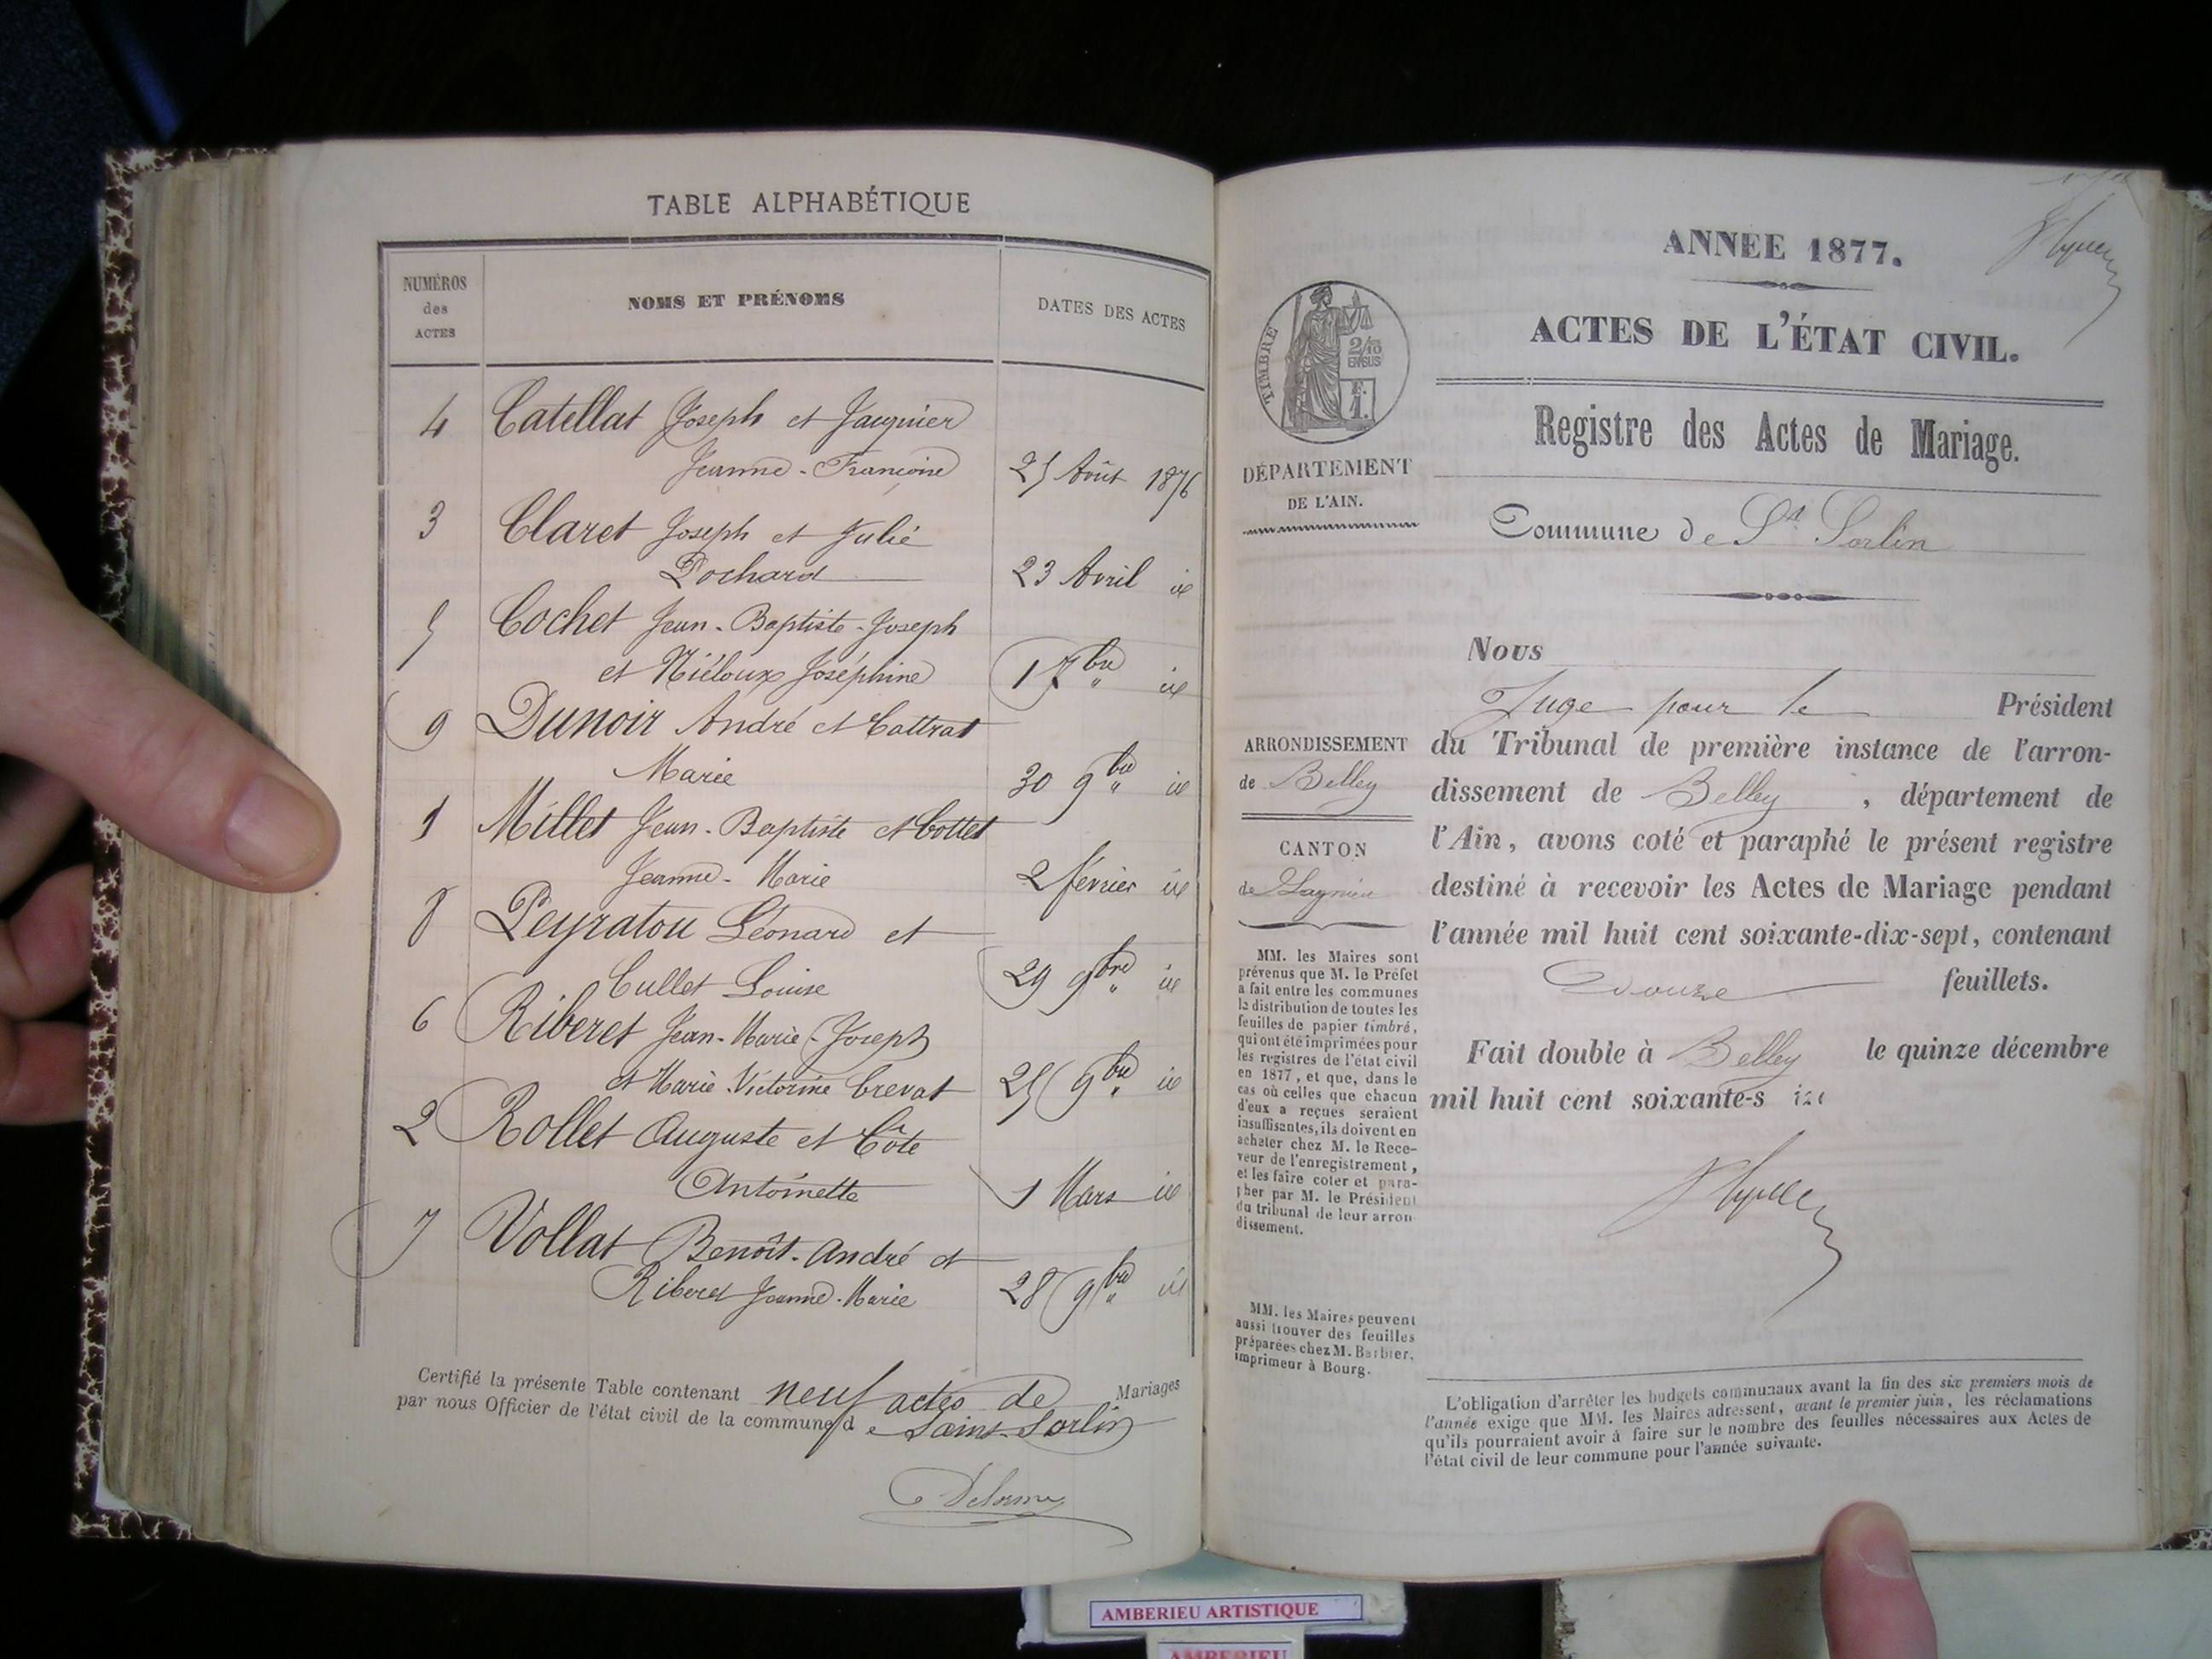 TABLE ALPHABÉTIQUE
NUMÉROS
des
ACTES
NOMS ET PRÉNOMS
DATES DES ACTES
4 Catellat Joseph et Jaugnier
Jeanne-Françoise 25 Août 1876
3 Claret Joseph et Julie
Pochard 23 Avril id
5 Cochet Jean-Baptiste-Joseph
et Niéloux Joséphine 1 7bre id
9 Dunoir André et Cattrat
Marie 30 9bre id
1 Millet Jean-Baptiste et Cottet
Jeanne-Marie 2 février id
8 Peyratou Léonard et
Cullet Louise 29 9bre id
6 Riberet Jean-Marie-Joseph
et Marie-Victorine Crevat 25 9bre id
2 Rollet Auguste et Côte
Antoinette 1 Mars id
7 Vollat Benoît-André et
Riberet Jeanne-Marie 28 9bre id
Certifié la présente Table contenant neuf actes de Mariages
par nous Officier de l'état civil de la commune de Saint-Sorlin
Delorme
ANNÉE 1877.
ACTES DE L'ÉTAT CIVIL.
Registre des Actes de Mariage.
Commune de St Sorlin
TIMBRE
2/10
EN SUS
F.
1.
DÉPARTEMENT
DE L'AIN.
ARRONDISSEMENT
de Belley
CANTON
de Lagnieu
MM. les Maires sont
prévenus que M. le Préfet
a fait entre les communes
la distribution de toutes les
feuilles de papier timbré,
qui ont été imprimées pour
les registres de l'état civil
en 1877, et que, dans le
cas où celles que chacun
d'eux a reçues seraient
insuffisantes, ils doivent en
acheter chez M. le Rece-
veur de l'enregistrement,
et les faire coter et para-
pher par M. le Président
du tribunal de leur arron-
dissement.
MM. les Maires peuvent
aussi trouver des feuilles
préparées chez M. Barbier,
imprimeur à Bourg.
Nous
Juge pour le Président
du Tribunal de première instance de l'arron-
dissement de Belley, département de
l'Ain, avons coté et paraphé le présent registre
destiné à recevoir les Actes de Mariage pendant
l'année mil huit cent soixante-dix-sept, contenant
Douze feuillets.
Fait double à Belley le quinze décembre
mil huit cent soixante-s
L'obligation d'arrêter les budgets communaux avant la fin des six premiers mois de
l'année exige que MM. les Maires adressent, avant le premier juin, les réclamations
qu'ils pourraient avoir à faire sur le nombre des feuilles nécessaires aux Actes de
l'état civil de leur commune pour l'année suivante.
AMBERIEU ARTISTIQUE
AMBERIEU